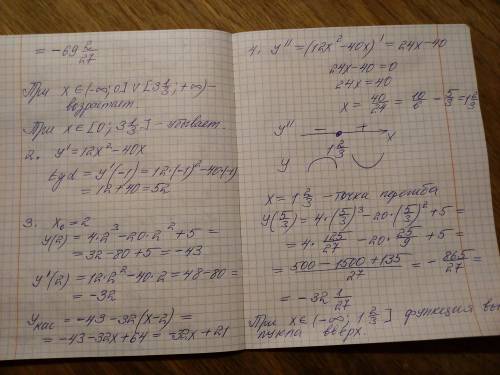 = -69 2/27
При x∈(-∞; 0] ∨ [3 1/3; +∞) -
возрастает.
При x∈[0; 3 1/3] - убывает.
2. y' = 12x² - 40x
tg α = y'(-1) = 12·(-1)² - 40·(-1)
= 12 + 40 = 52
3. x₀ = 2
y(2) = 4·2³ - 20·2² + 5 =
= 32 - 80 + 5 = -43
y'(2) = 12·2² - 40·2 = 48 - 80 =
= -32
y кас = -43 - 32(x-2) =
= -43 - 32x + 64 = -32x + 21
4. y'' = (12x² - 40x)' = 24x - 40
24x - 40 = 0
24x = 40
x = 40/24 = 10/6 = 5/3 = 1 2/3
y'' - + x
1 2/3
y
x = 1 2/3 - точка перегиба
y(5/3) = 4·(5/3)³ - 20·(5/3)² + 5 =
= 4·125/27 - 20·25/9 + 5 =
= (500 - 1500 + 135)/27 = -865/27 =
= -32 1/27
При x∈(-∞; 1 2/3] функция вы
пукла вверх.